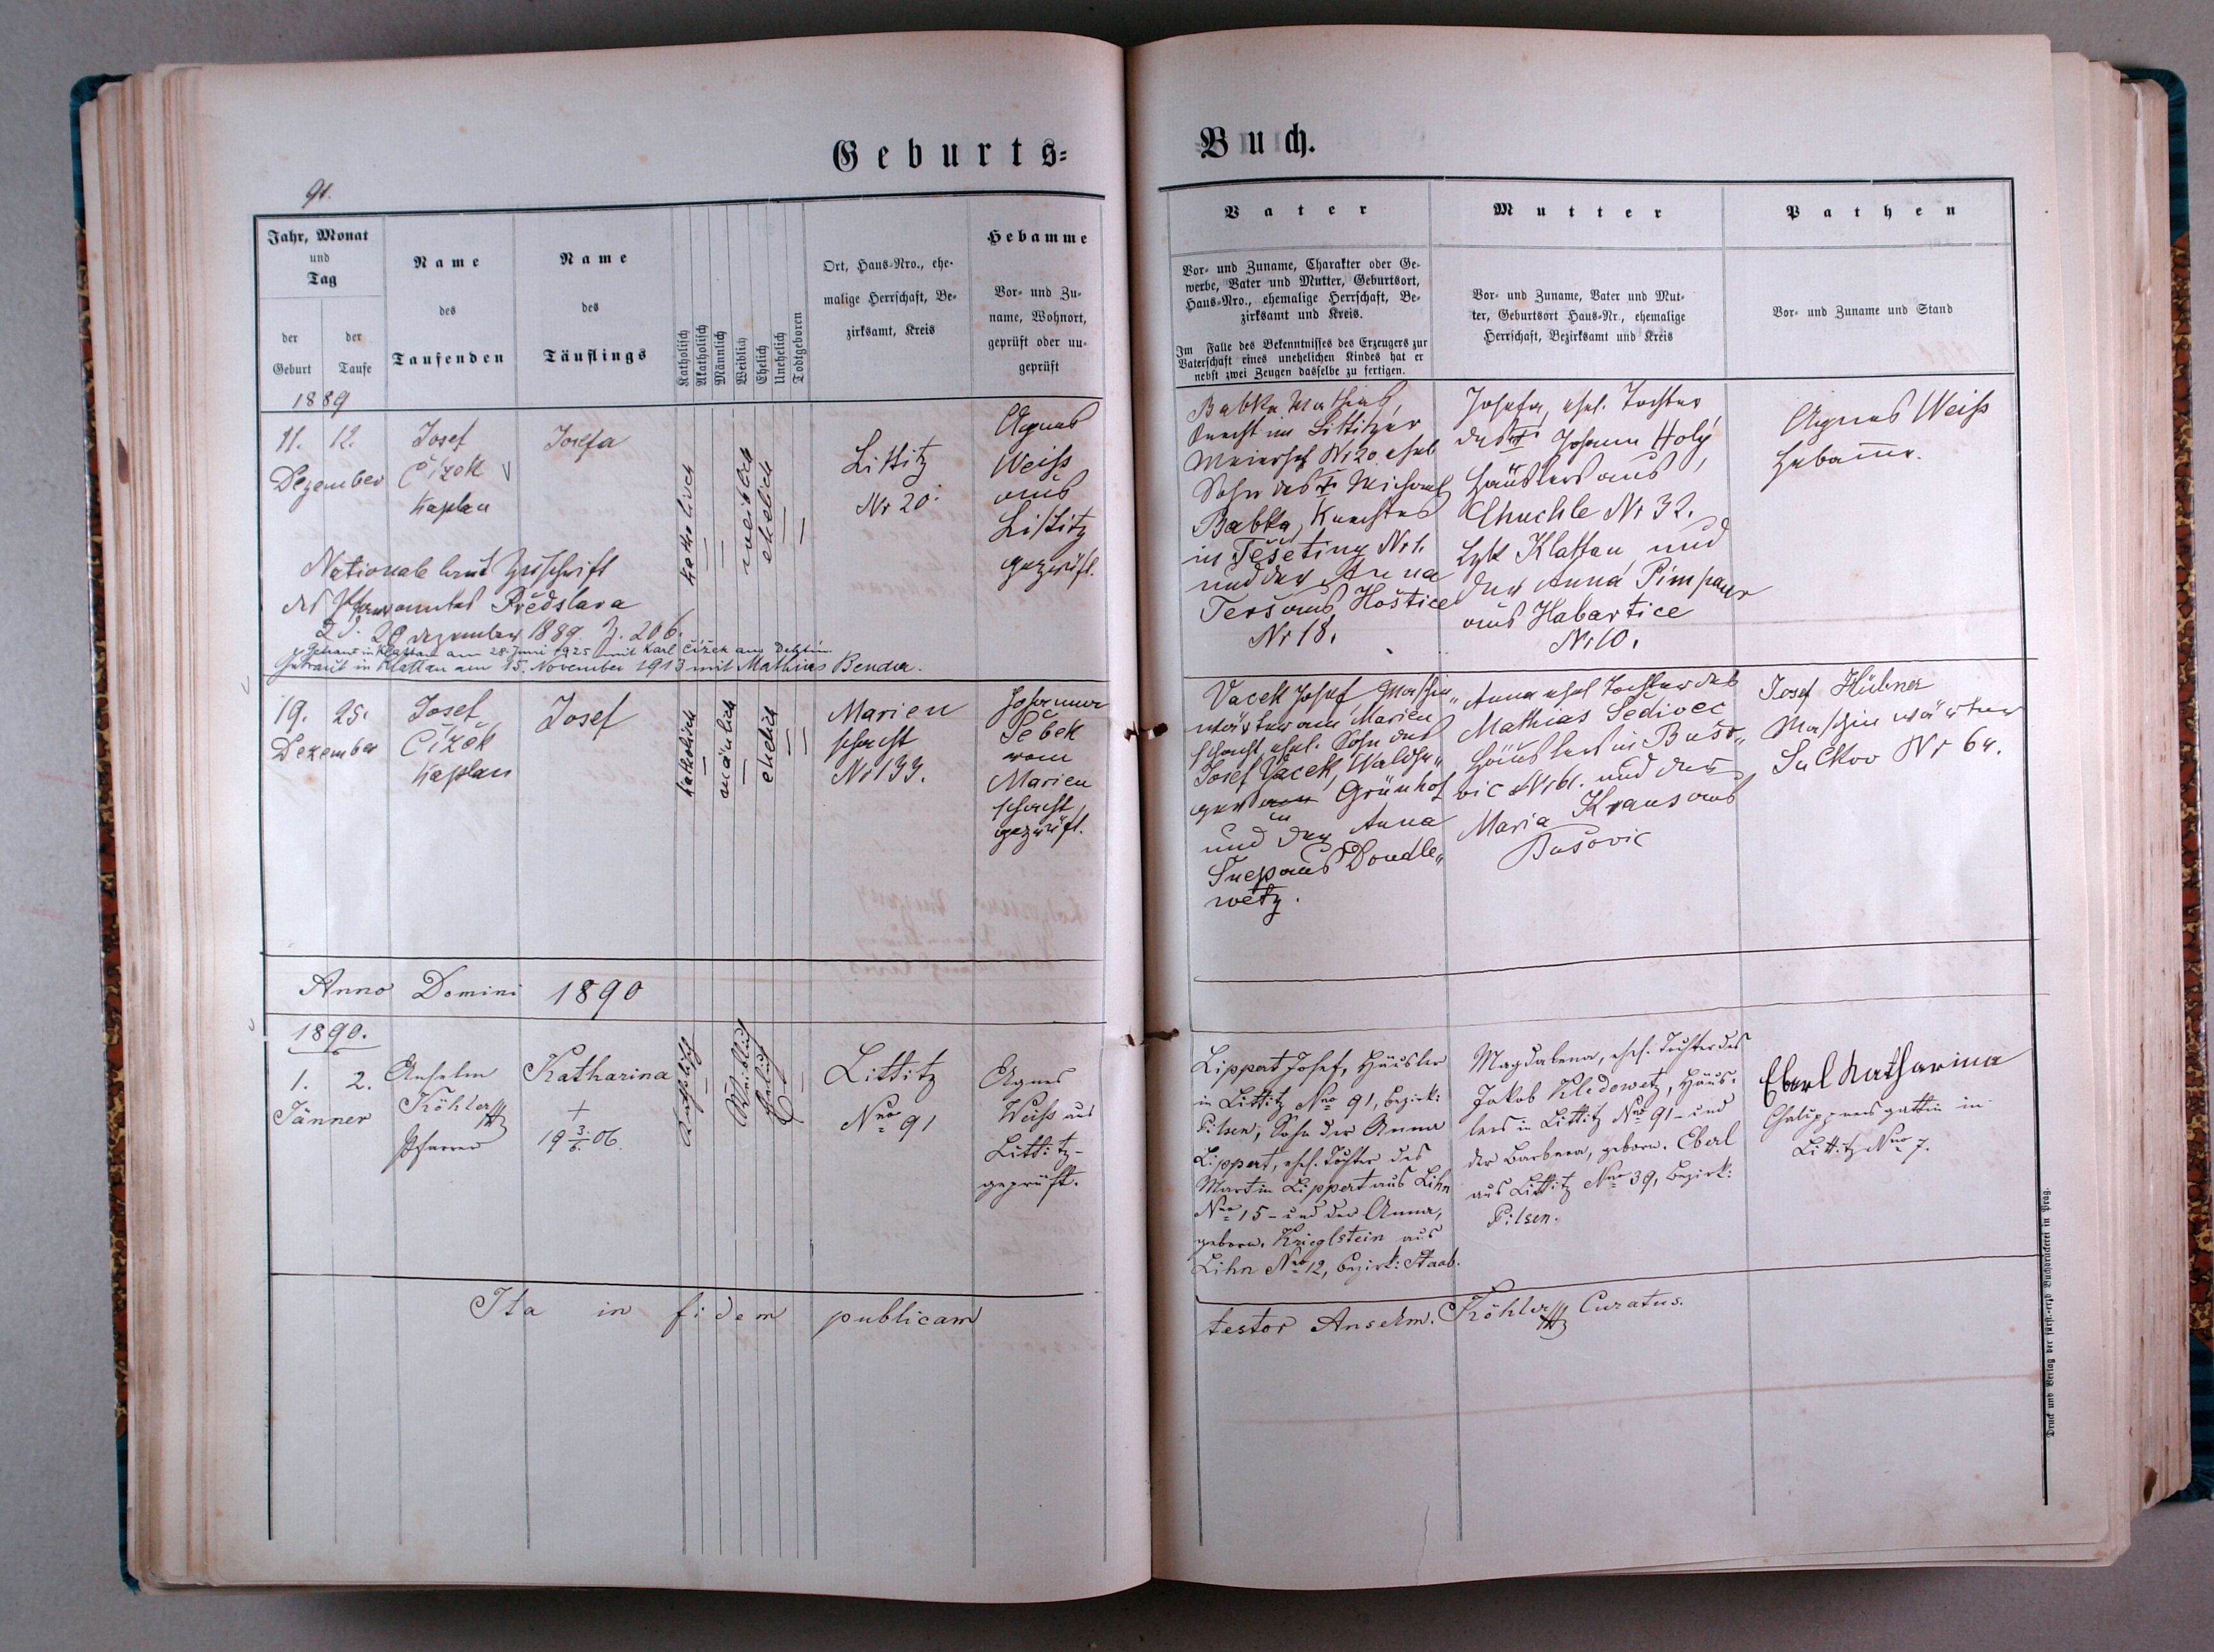 Geburts=
Buch.
91.
Jahr, Monat
und
Tag
der
Geburt
der
Taufe
Name
des
Taufenden
Name
des
Täuflings
Katholisch
Akatholisch
Männlich
Weiblich
Ehelich
Unehelich
Todtgeboren
Ort, Haus-Nro., ehe-
malige Herrschaft, Be-
zirksamt, Kreis
Hebamme
Vor- und Zu-
name, Wohnort,
geprüft oder un-
geprüft
Vater
Vor- und Zuname, Charakter oder Ge-
werbe, Vater und Mutter, Geburtsort,
Haus-Nro., ehemalige Herrschaft, Be-
zirksamt und Kreis.
Im Falle des Bekenntnisses des Erzeugers zur
Vaterschaft eines unehelichen Kindes hat er
nebst zwei Zeugen dasselbe zu fertigen.
Mutter
Vor- und Zuname, Vater und Mut-
ter, Geburtsort Haus-Nr., ehemalige
Herrschaft, Bezirksamt und Kreis
Pathen
Vor- und Zuname und Stand
1889
11. 12.
Dezember
Josef
Čížek
Kaplan
Josefa
katholisch
weiblich
ehelich
Littitz
Nr 20.
Agnes
Weiss
aus
Littitz
geprüft.
Babka Mathias,
Knecht im Littitzer
Meierhof Nr 20 ehel
Sohn des † Michael
Babka, Knechtes
in Těšetiny Nr 1.
und der Anna
Terš aus Hoštice
Nr 18.
Josefa, ehel. Tochter
des † Johann Holý,
Häuslers aus
Chuchle Nr 32.
Bzk Klattau und
der Anna Pimpaur
aus Habartice
Nr 10.
Agnes Weiss
Hebamme.
Nationale laut Zuschrift
des Pfarramtes Předslava
d. d. 20 Dezember 1889. Z. 206.
Getraut in Klattau am 28. Juni 1925 mit Karl Čížek aus Dehtín.
Getraut in Klattau am 15. November 1913 mit Mathias Benda.
19. 25.
Dezember
Josef
Čížek
Kaplan
Josef
katholisch
mänlich
ehelich
Marien
schacht
Nr 133.
Johanna
Šebek
vom
Marien
schacht,
geprüft.
Vacek Josef, Maschin„
wärter am Marien
schacht, ehel. Sohn des
Josef Vacek, Waldhe„
gers in Grünhof
und der Anna
aus Doudle„
wetz.
Anna ehel Tochter des
Mathias Šedivec
Häuslers in Bušo„
vic Nr 61. und der
Maria Kraus aus
Bušovic
Josef Hübner
Maschinwärter
Sulkov Nr 64.
Anno Domini 1890
1890.
1. 2.
Jänner
Anselm
Köhler
Pfarrer
Katharina
†
19 3/6. 06.
Katholisch
Weiblich
Ehelich
Littitz
Nro 91
Agnes
Weiss aus
Littitz-
geprüft.
Lippert Josef, Häusler
in Littitz Nro 91, Bezirk:
Pilsen; Sohn der Anna
Lippert, ehel. Tochter des
Martin Lippert aus Lihn
Nro 15 - und der Anna,
geborn. Krieglstein aus
Lihn Nro 12, Bezirk: Staab.
Magdalena, ehel. Tochter des
Jakob Kledowetz, Häus-
lers in Littitz Nro 91 - und
der Barbara, geborn. Eberl
aus Littitz Nro 39, Bezirk:
Pilsen.
Eberl Katharina
Chaluppnersgattin in
Littitz Nro 7.
Ita in fidem publicam
testor Anselm. Köhler Curatus.
Druck und Verlag der fürst.-erzb Buchdruckerei in Prag.